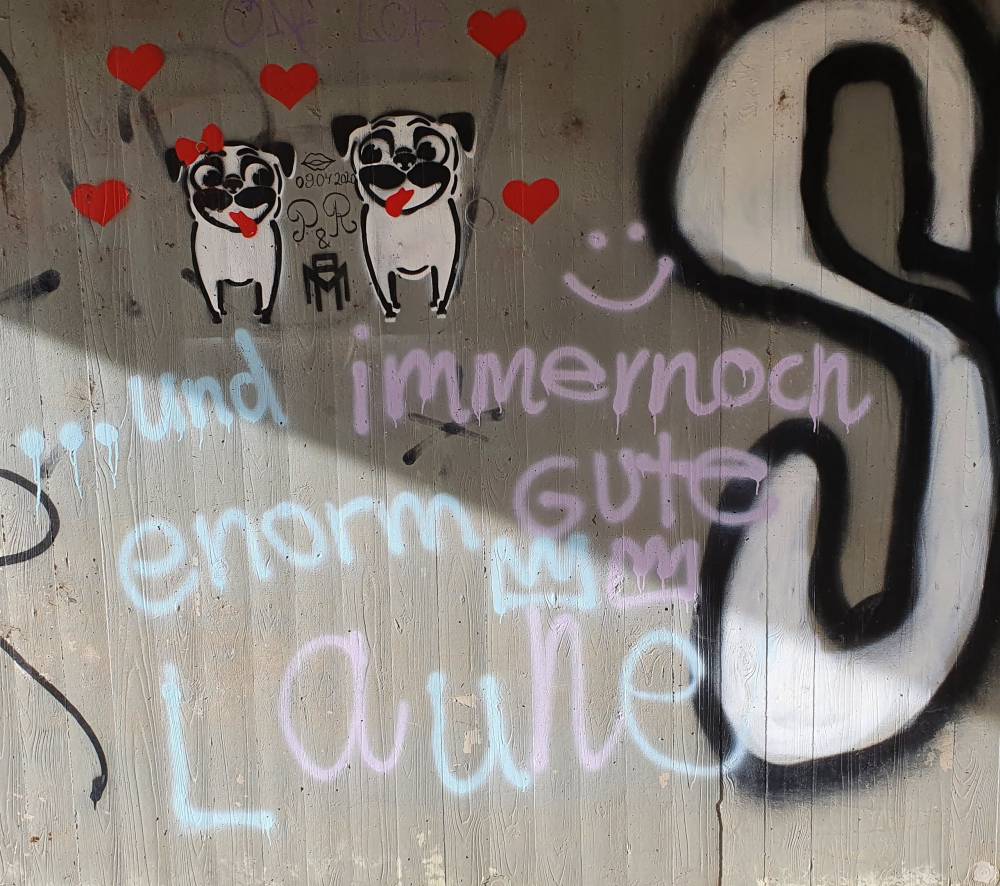 09.04.2020
P & R
...und immernoch
Gute
enorm
Laune
S